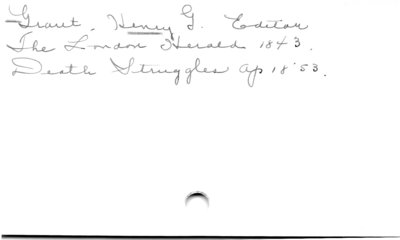 Grant, Henry G. Editor
The London Herald 1843.
Death Struggles Ap 18 '53.